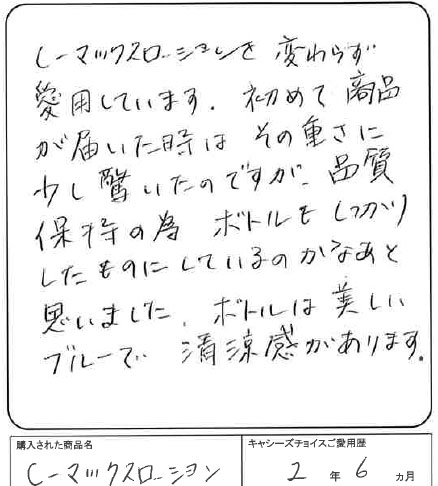 Cーマックスローションを 変わらず
愛用しています. 初めて 商品
が届いた時は その重さに
少し驚いたのですが、品質
保持の為 ボトルも しっかり
したものにしているのかなあと
思いました. ボトルは 美しい
ブルーで 清涼感があります.
購入された商品名
キャシーズチョイスご愛用歴
Cーマックスローション
2 年 6 ヵ月